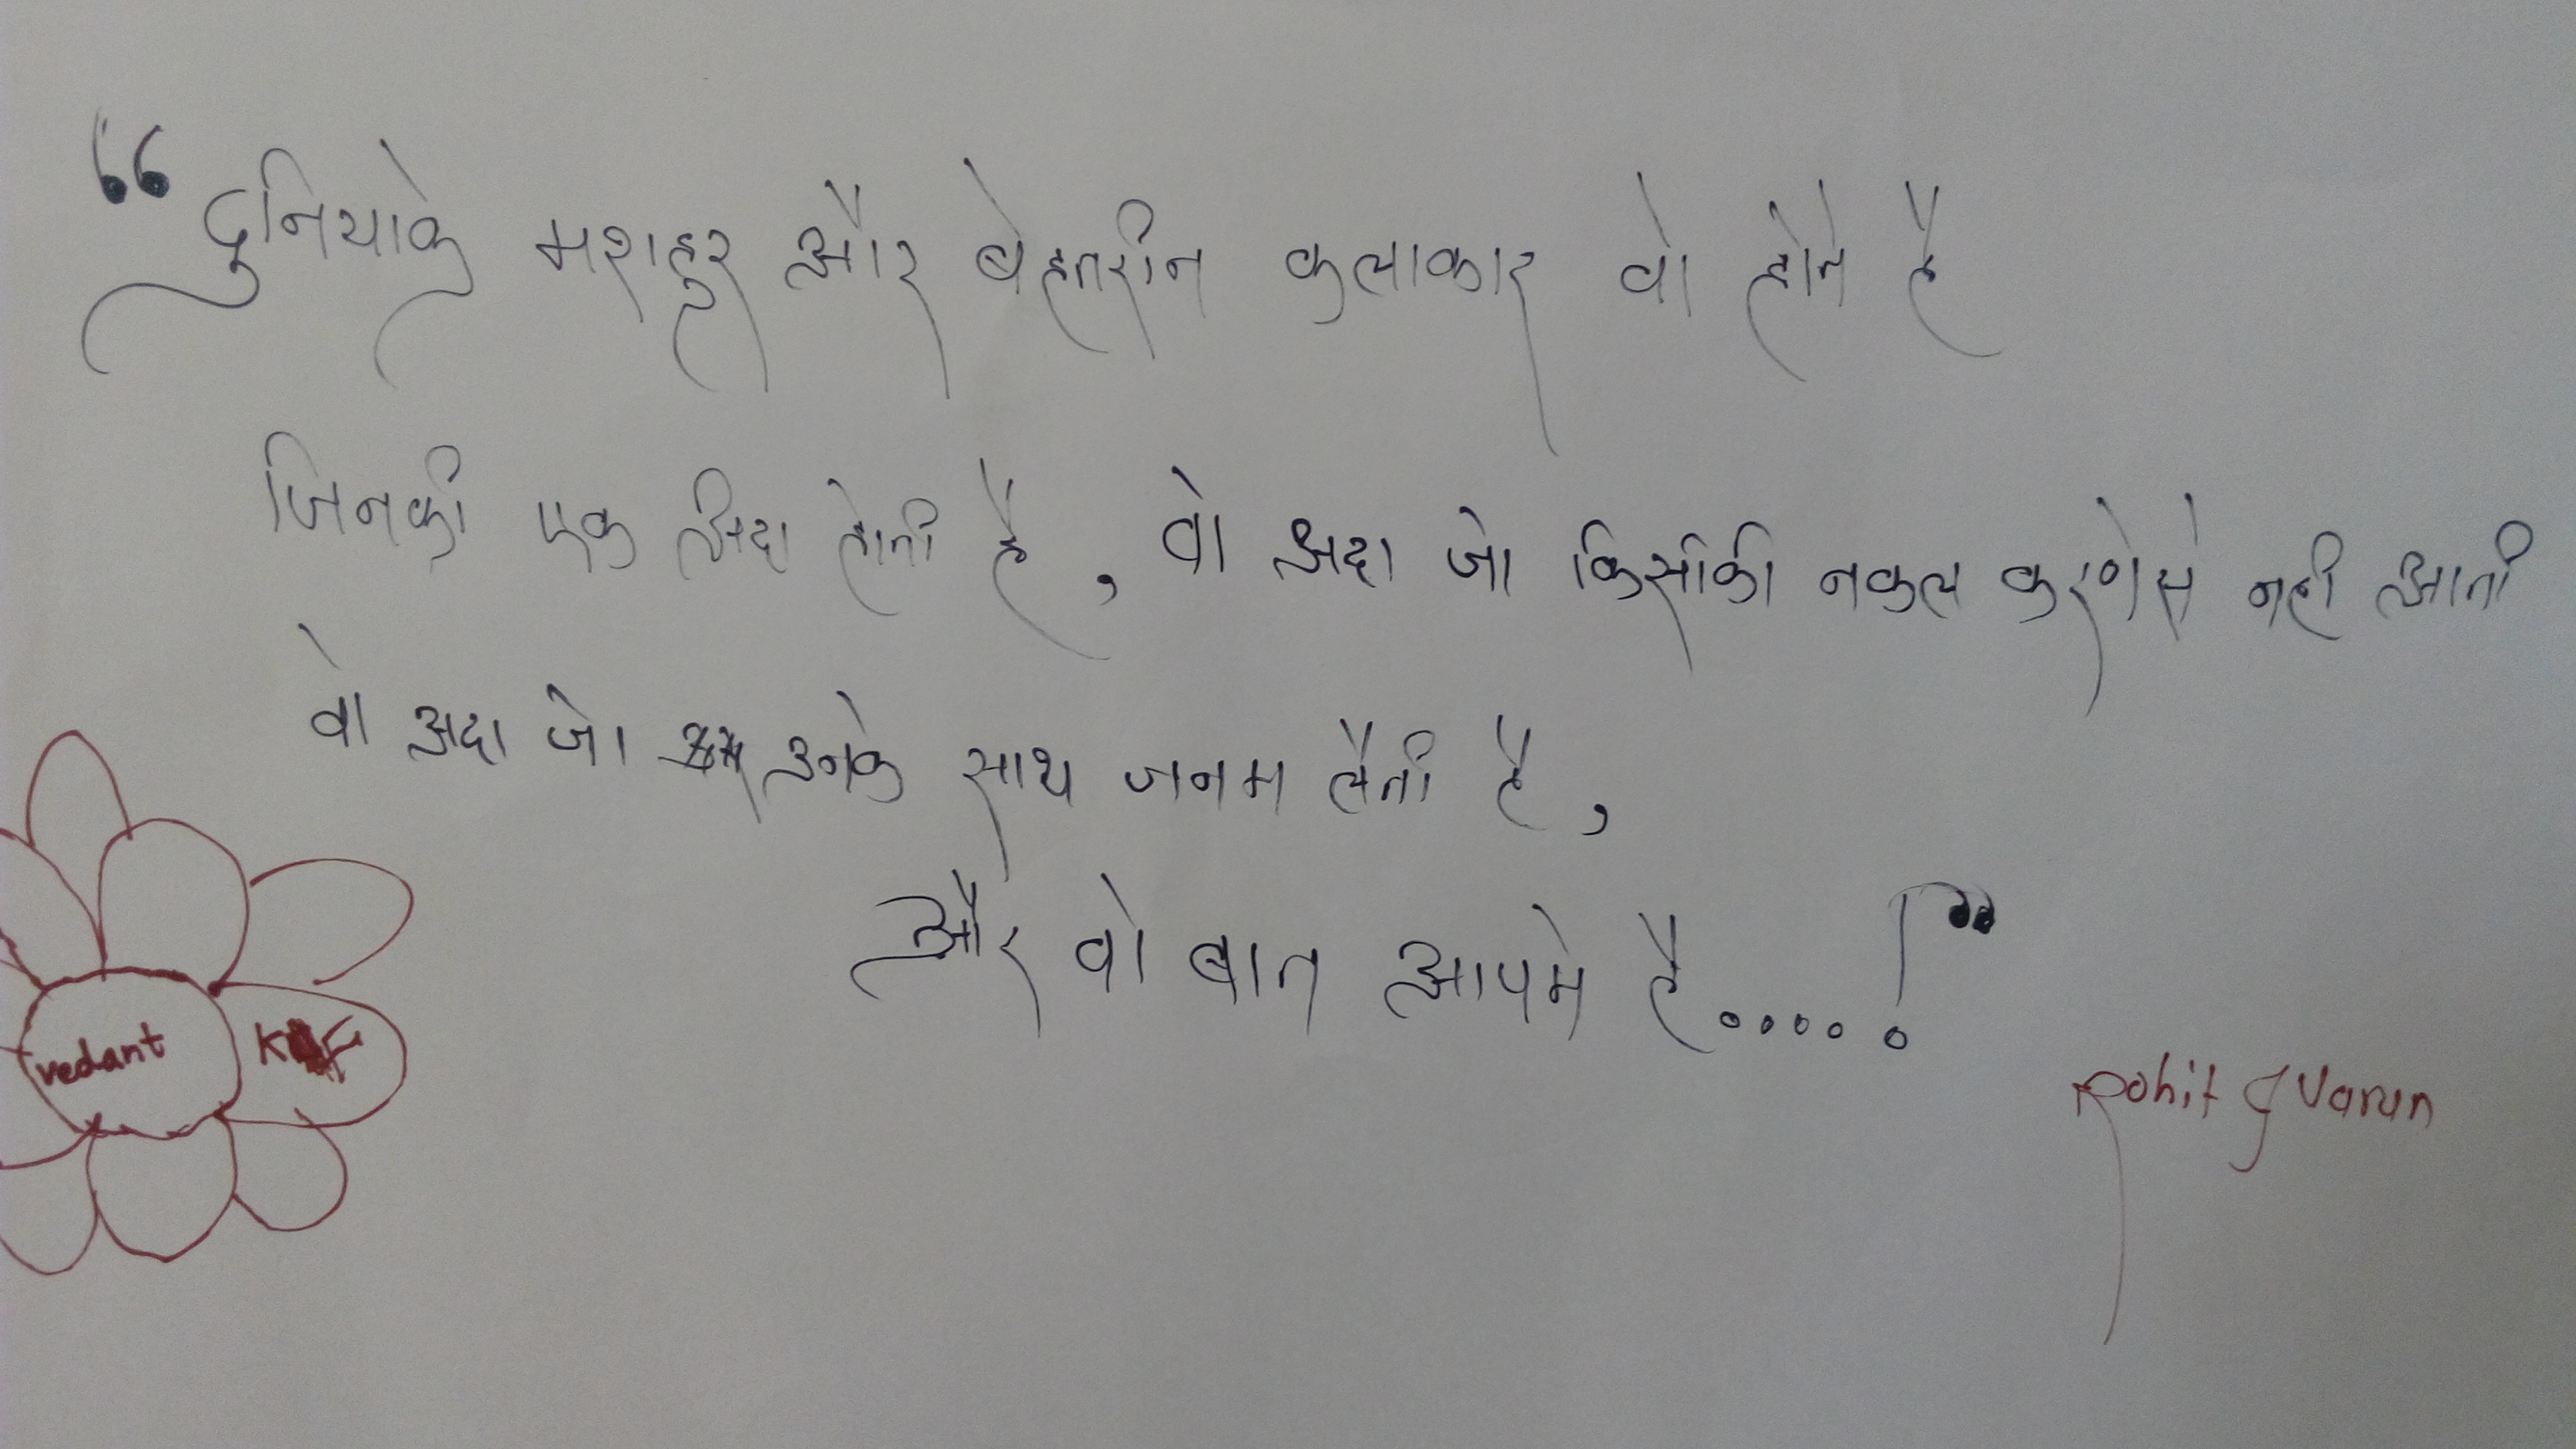 “दुनियाके मशहूर और बेहतरीन कलाकार वो होते है
जिनकी एक अदा होती है, वो अदा जो किसीकी नकल करणेसे नही आती
वो अदा जो उनके साथ जनम लेती है,
और वो बात आपमे है.....!”
vedant
Rohit & Varun